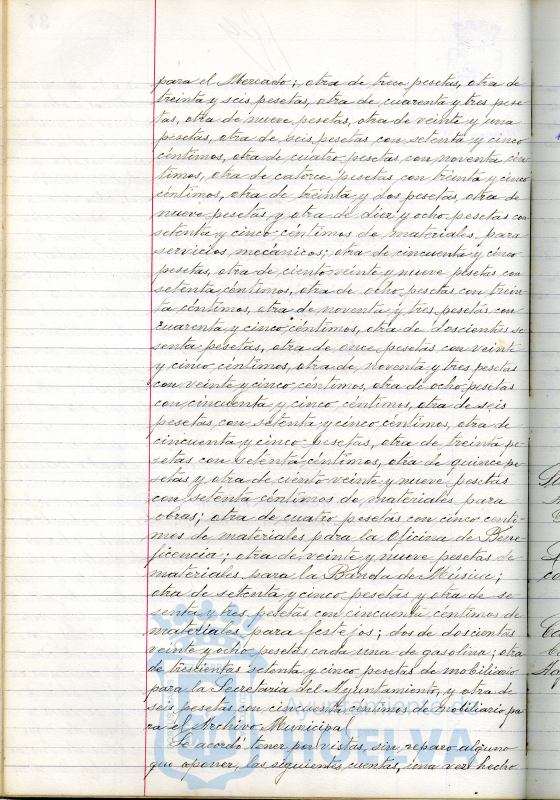 para el Mercado; otra de trece pesetas, otra de
treinta y seis pesetas, otra de cuarenta y tres pese
tas, otra de nueve pesetas, otra de veinte y una
pesetas, otra de seis pesetas con setenta y cinco
céntimos, otra de cuatro pesetas con noventa cén
timos, otra de catorce pesetas con treinta y cinco
céntimos, otra de treinta y dos pesetas, otra de
nueve pesetas y otra de diez y ocho pesetas con
setenta y cinco céntimos de materiales para
servicios mecánicos; otra de cincuenta y cinco
pesetas, otra de ciento veinte y nueve pesetas con
setenta céntimos, otra de ocho pesetas con trein
ta céntimos, otra de noventa y tres pesetas con
cuarenta y cinco céntimos, otra de doscientas se
senta pesetas, otra de once pesetas con veinte
y cinco céntimos, otra de noventa y tres pesetas
con veinte y cinco céntimos, otra de ocho pesetas
con cincuenta y cinco céntimos, otra de seis
pesetas con setenta y cinco céntimos, otra de
cincuenta y cinco pesetas, otra de treinta pe
setas con setenta céntimos, otra de quince pe
setas y otra de ciento veinte y nueve pesetas
con setenta céntimos de materiales para
obras; otra de cuatro pesetas con cinco cénti
mos de materiales para la Oficina de Bene
ficencia; otra de veinte y nueve pesetas de
materiales para la Banda de Música;
otra de setenta y cinco pesetas y otra de se
senta y tres pesetas con cincuenta céntimos de
materiales para festejos; dos de doscientas
veinte y ocho pesetas cada una de gasolina; otra
de trescientas setenta y cinco pesetas de mobiliario
para la Secretaría del Ayuntamiento, y otra de
seis pesetas con cincuenta céntimos de mobiliario pa
ra el Archivo Municipal
Se acordó tener por vistas, sin reparo alguno
que oponer, las siguientes cuentas, una vez hecho
HUELVA